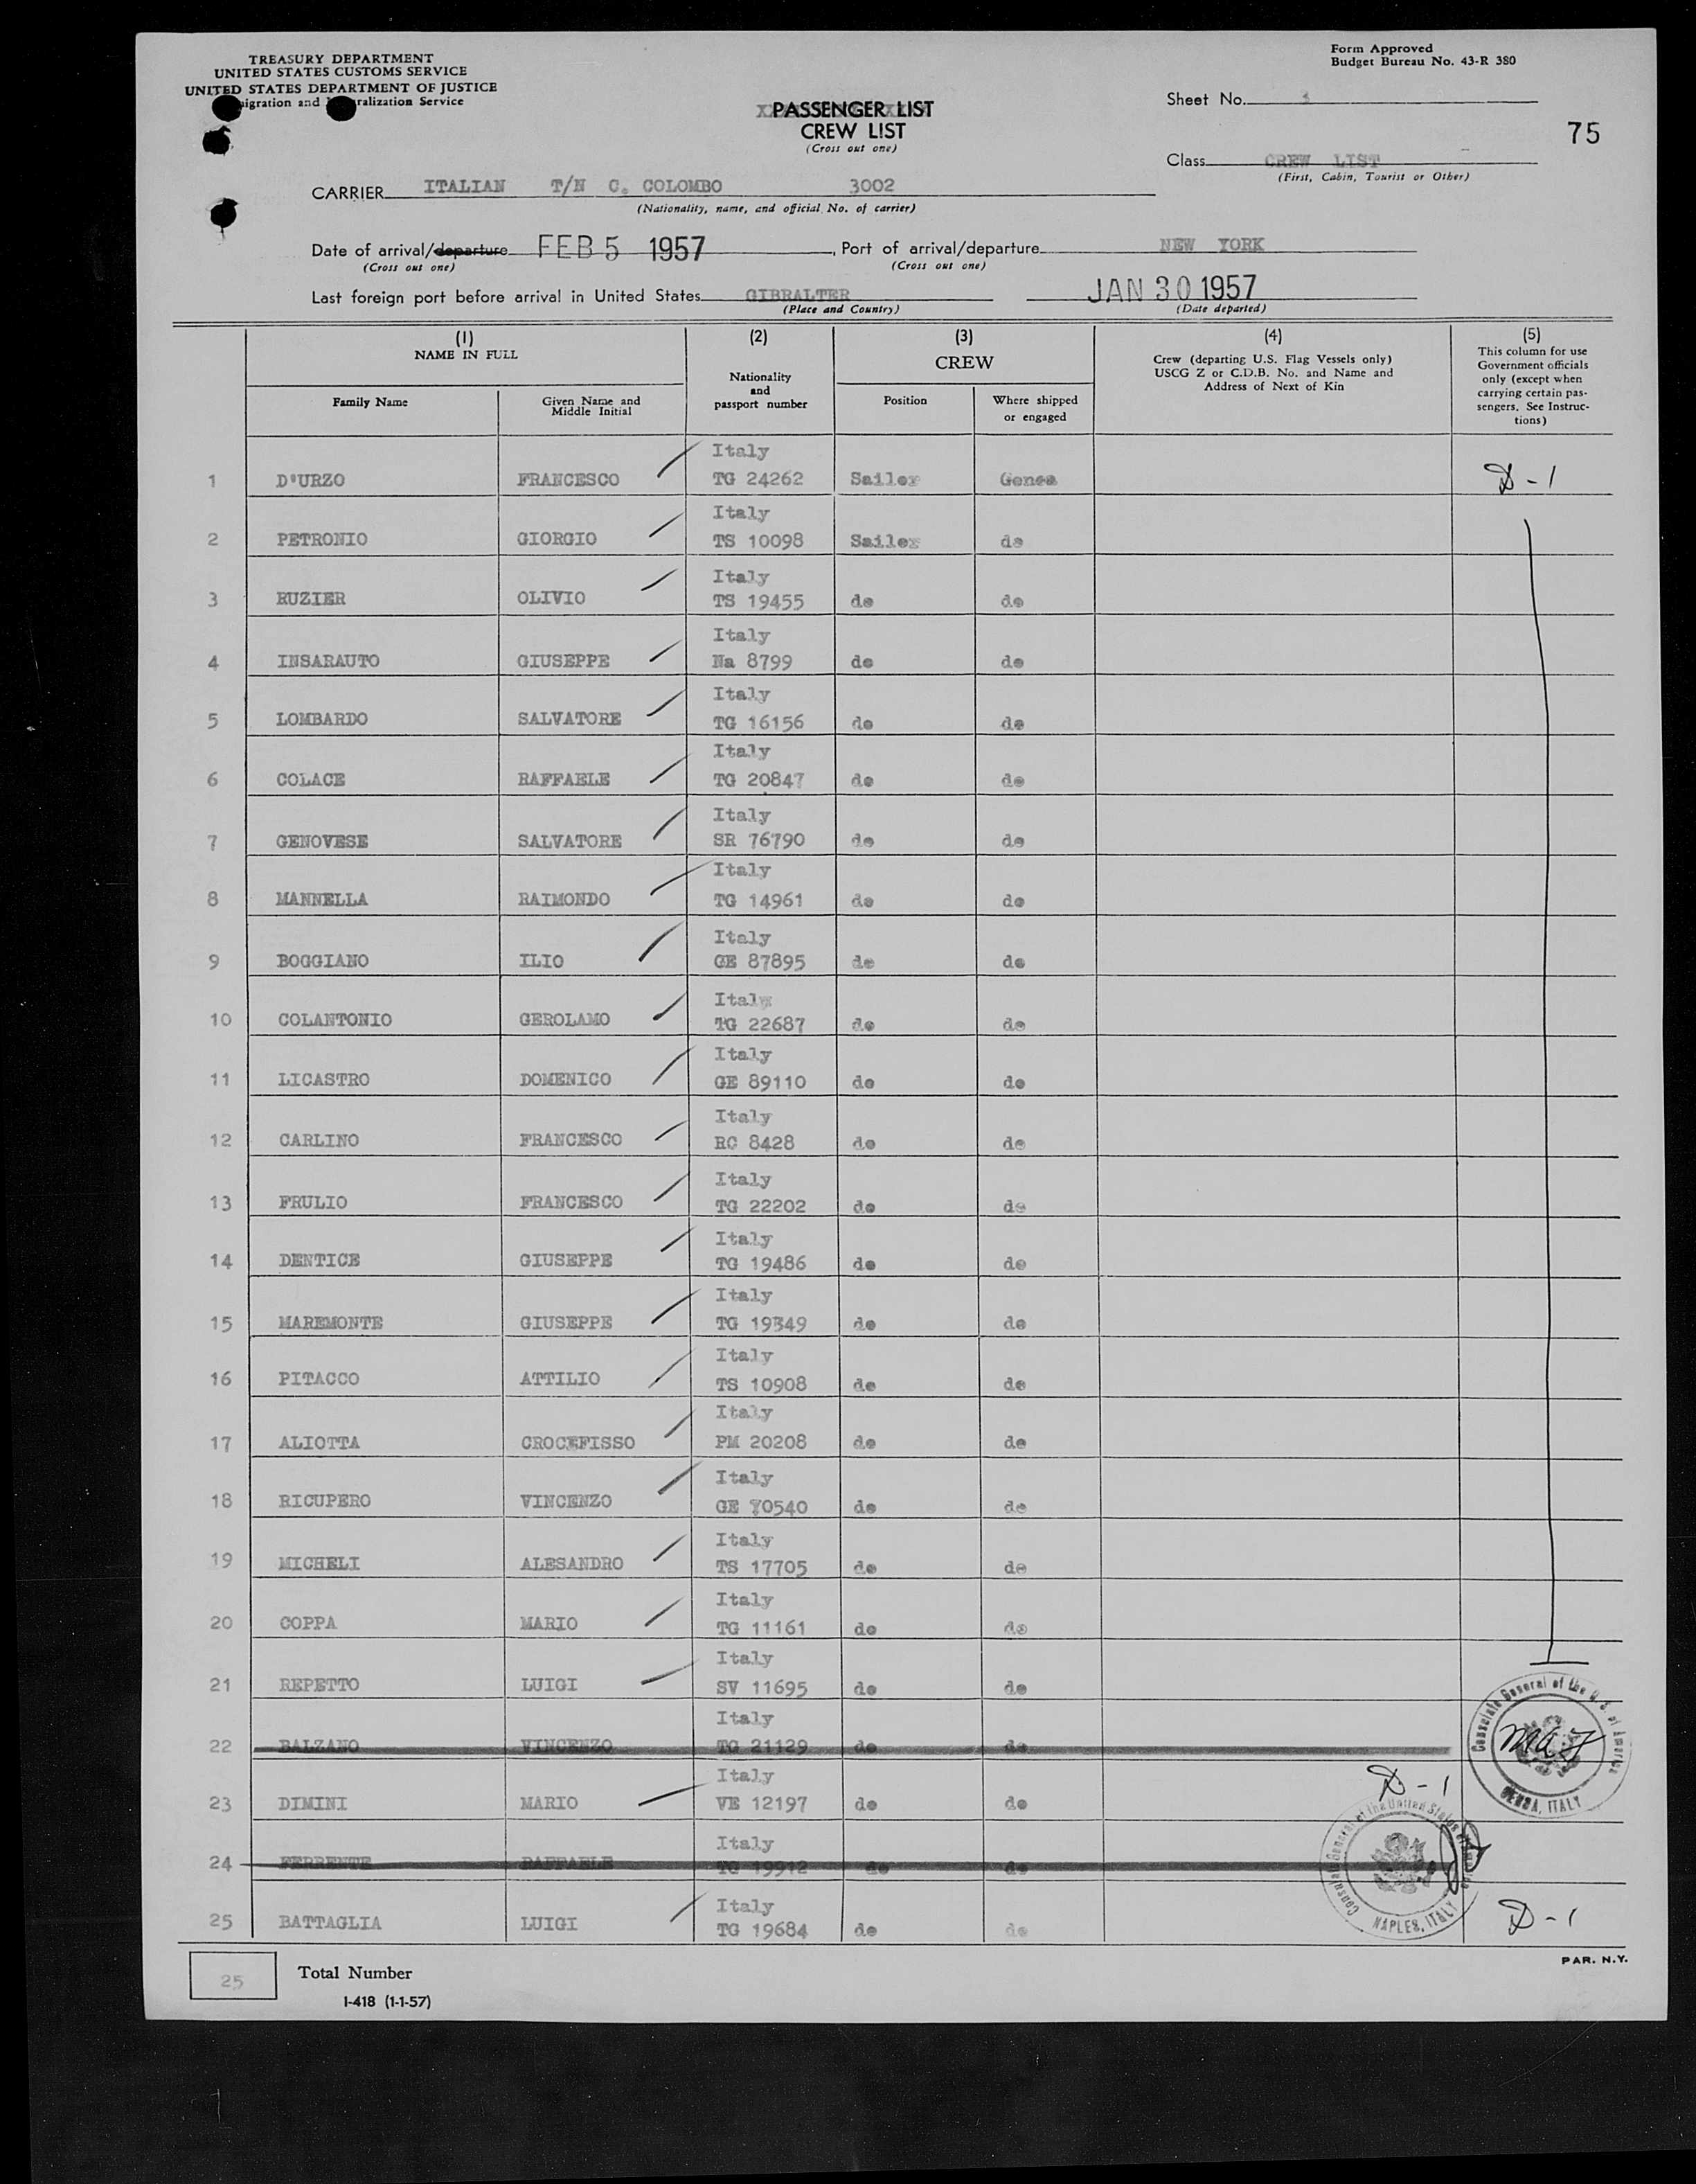 TREASURY DEPARTMENT
UNITED STATES CUSTOMS SERVICE
UNITED STATES DEPARTMENT OF JUSTICE
igration and ralization Service
Form Approved
Budget Bureau No. 43-R 380
PASSENGER LIST
CREW LIST
(Cross out one)
Sheet No.
75
Class CREW LIST
(First, Cabin, Tourist or Other)
CARRIER ITALIAN T/N C. COLOMBO 3002
(Nationality, name, and official No. of carrier)
Date of arrival/departure FEB 5 1957, Port of arrival/departure NEW YORK
(Cross out one) (Cross out one)
Last foreign port before arrival in United States GIBRALTER JAN 30 1957
(Place and Country) (Date departed)
(1) NAME IN FULL
Family Name
Given Name and Middle Initial
(2)
Nationality and passport number
(3)
CREW
Position
Where shipped or engaged
(4)
Crew (departing U.S. Flag Vessels only)
USCG Z or C.D.B. No. and Name and
Address of Next of Kin
(5)
This column for use
Government officials
only (except when
carrying certain pas-
sengers. See Instruc-
tions)
Italy
1 D'URZO FRANCESCO TG 24262 Sailor Genoa D-1
Italy
2 PETRONIO GIORGIO TS 10098 Sailor do
Italy
3 RUZIER OLIVIO TS 19455 do do
Italy
4 INSARAUTO GIUSEPPE Na 8799 do do
Italy
5 LOMBARDO SALVATORE TG 16156 do do
Italy
6 COLACE RAFFAELE TG 20847 do do
Italy
7 GENOVESE SALVATORE SR 76790 do do
Italy
8 MANNELLA RAIMONDO TG 14961 do do
Italy
9 BOGGIANO ILIO GE 87895 do do
Italy
10 COLANTONIO GEROLAMO TG 22687 do do
Italy
11 LICASTRO DOMENICO GE 89110 do do
Italy
12 CARLINO FRANCESCO RC 8428 do do
Italy
13 FRULIO FRANCESCO TG 22202 do do
Italy
14 DENTICE GIUSEPPE TG 19486 do do
Italy
15 MAREMONTE GIUSEPPE TG 19349 do do
Italy
16 PITACCO ATTILIO TS 10908 do do
Italy
17 ALIOTTA CROCEFISSO PM 20208 do do
Italy
18 RICUPERO VINCENZO GE 70540 do do
Italy
19 MICHELI ALESANDRO TS 17705 do do
Italy
20 COPPA MARIO TG 11161 do do
Italy
21 REPETTO LUIGI SV 11695 do do
Italy
22 BALZANO VINCENZO TG 21129 do do
Consulate General of the U.S. of America
GENOA, ITALY
Italy
23 DIMINI MARIO VE 12197 do do D-1
Italy
24 FERRENTE RAFFAELE TG 19912 do do
Consulate General of the United States of America
NAPLES, ITALY
Italy
25 BATTAGLIA LUIGI TG 19684 do do D-1
PAR. N.Y.
25 Total Number
I-418 (1-1-57)